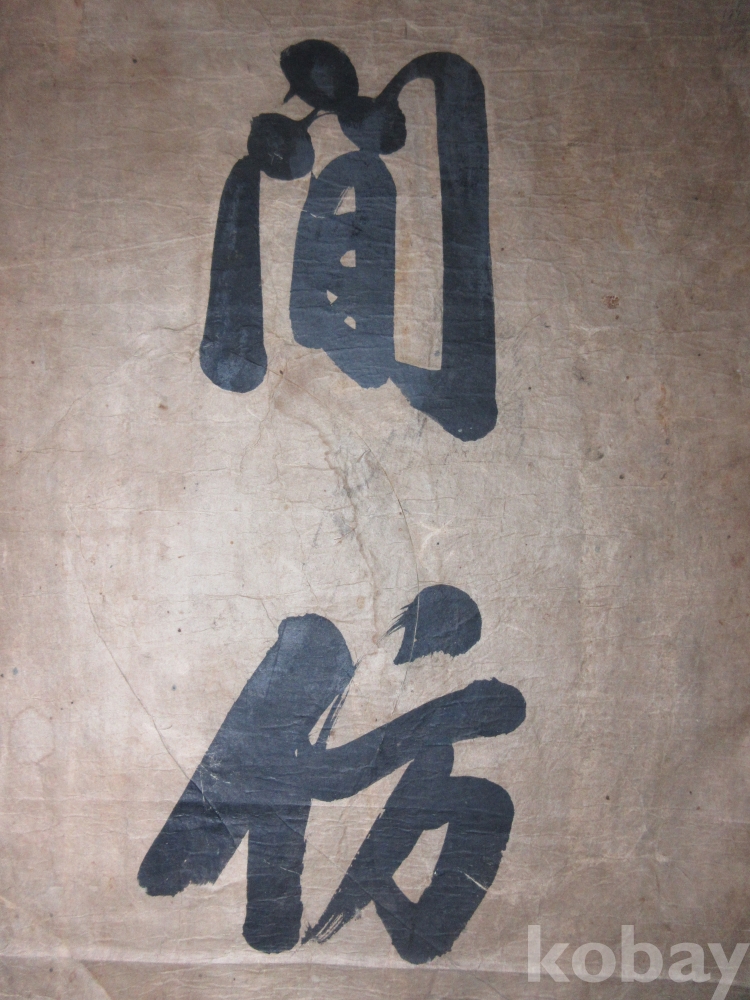 閒
仿
kobay